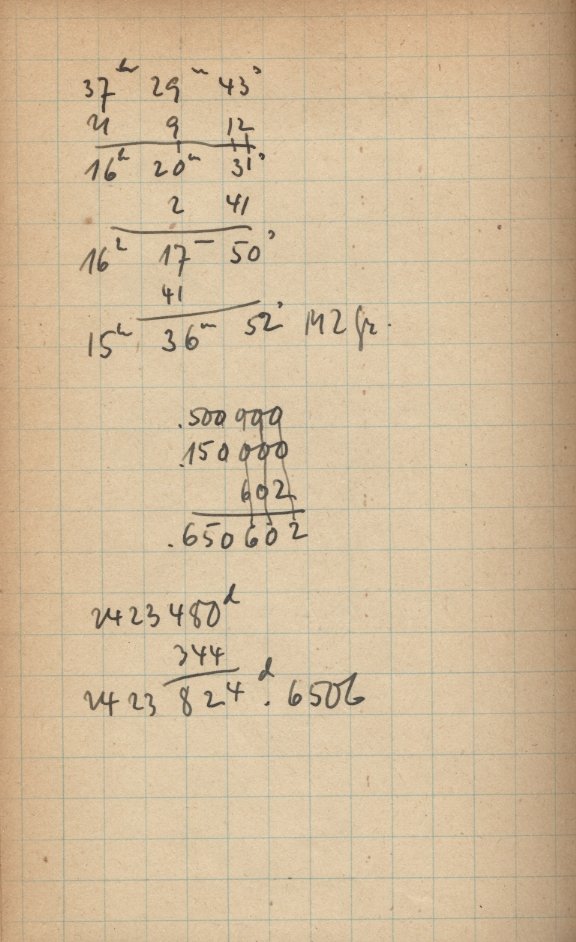 37ʰ 29ᵐ 43ˢ
21 9 12
16ʰ 20ᵐ 31ˢ
2 41
16ʰ 17ᵐ 50ˢ
41
15ʰ 36ᵐ 52ˢ MZ Gr.
.500 000
.150 000
602
.650 602
2423 480ᵈ
344
2423 824ᵈ.6506